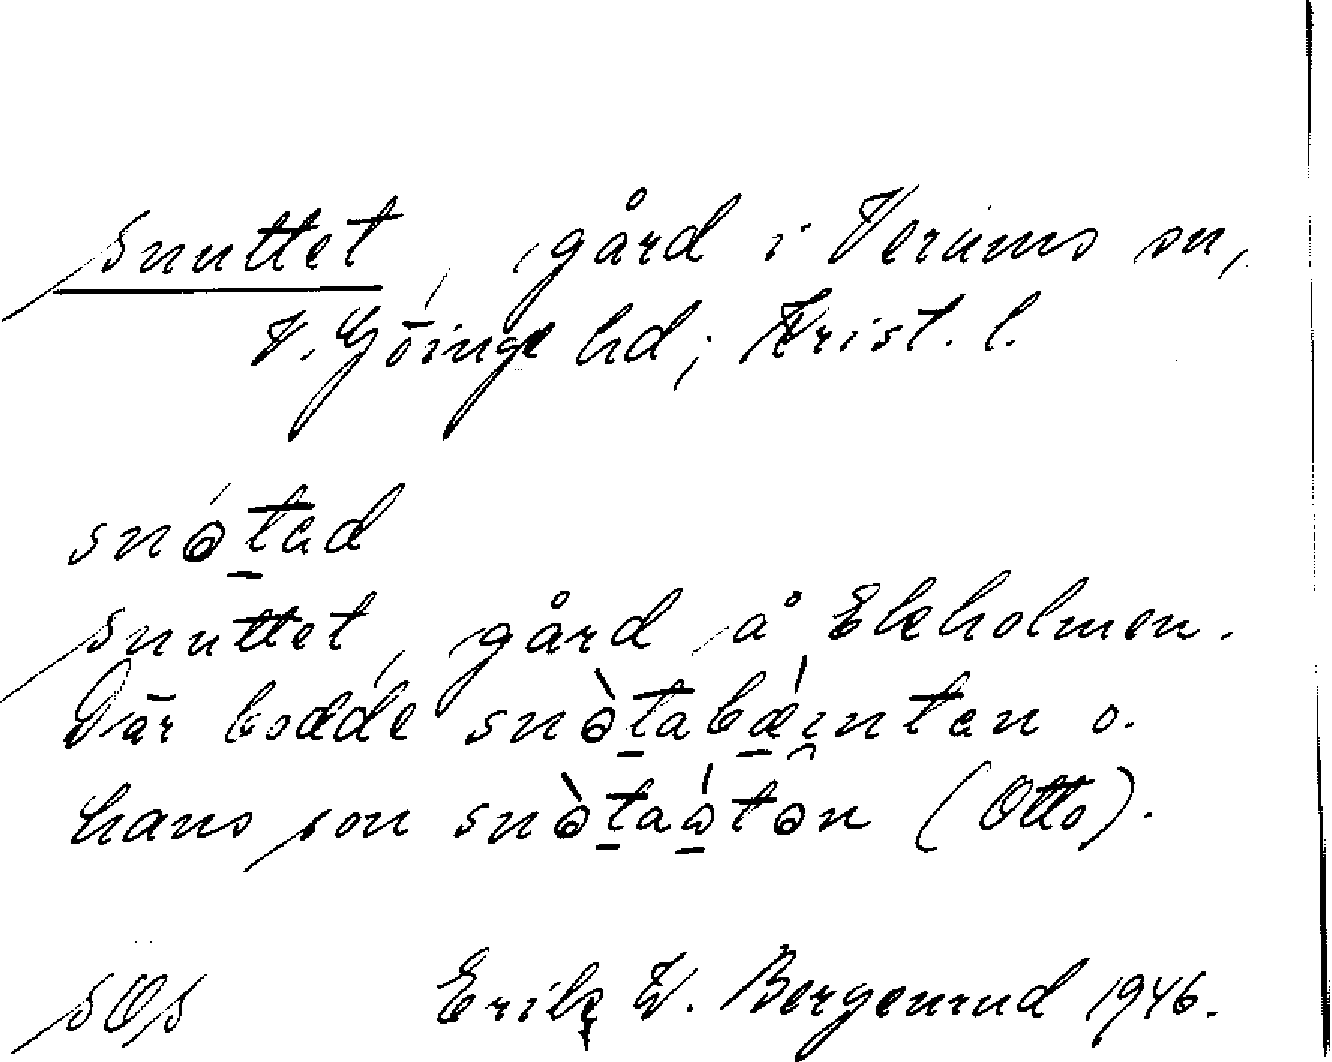 Snuttet, gård i Verums sn,
V. Göinge hd; Krist. l.
snɷ́tad
Snuttet, gård å Ekholmen.
Där bodde snɷ̀tabǽınten o.
hans son snɷ̀taɷ́tɷn (Otto).
SOS Erik W. Bergenrud 1946.